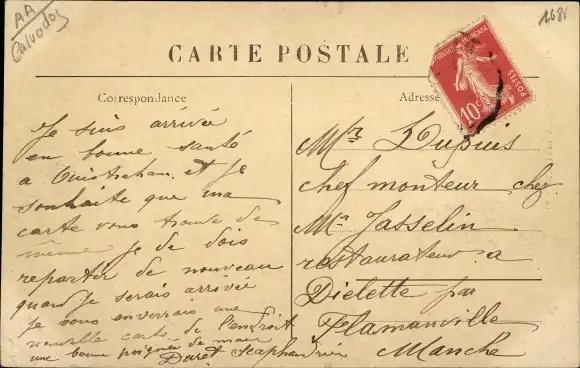 AA
Calvados
1681
CARTE POSTALE
REPUBLIQUE FRANÇAISE
POSTES
10c
Correspondance
Je suis arrivée
en bonne santé
a Ouistreham et je
souhaite que ma
carte vous trouve de
même je dois
repartir de nouveau
quand je serais arrivée
je vous enverrais une
nouvelle carte de l'endroit
une bonne poignée de main
Duret scaphandrier
Adresse
Mr Dupuis
chef monteur chez
Mr Jasselin
restaurateur a
Dielette par
Flamanville
Manche